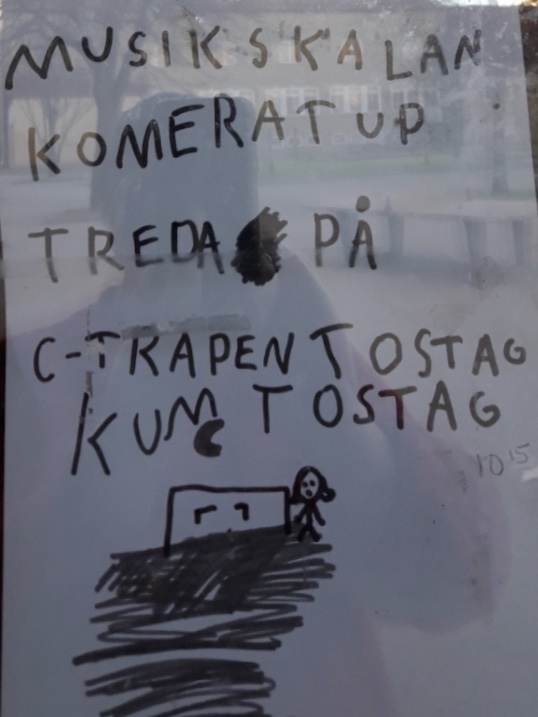 MUSIKSKALAN
KOMERAT UP
TREDA PÅ
C-TRAPEN TOSTAG
KUM TOSTAG
10 15